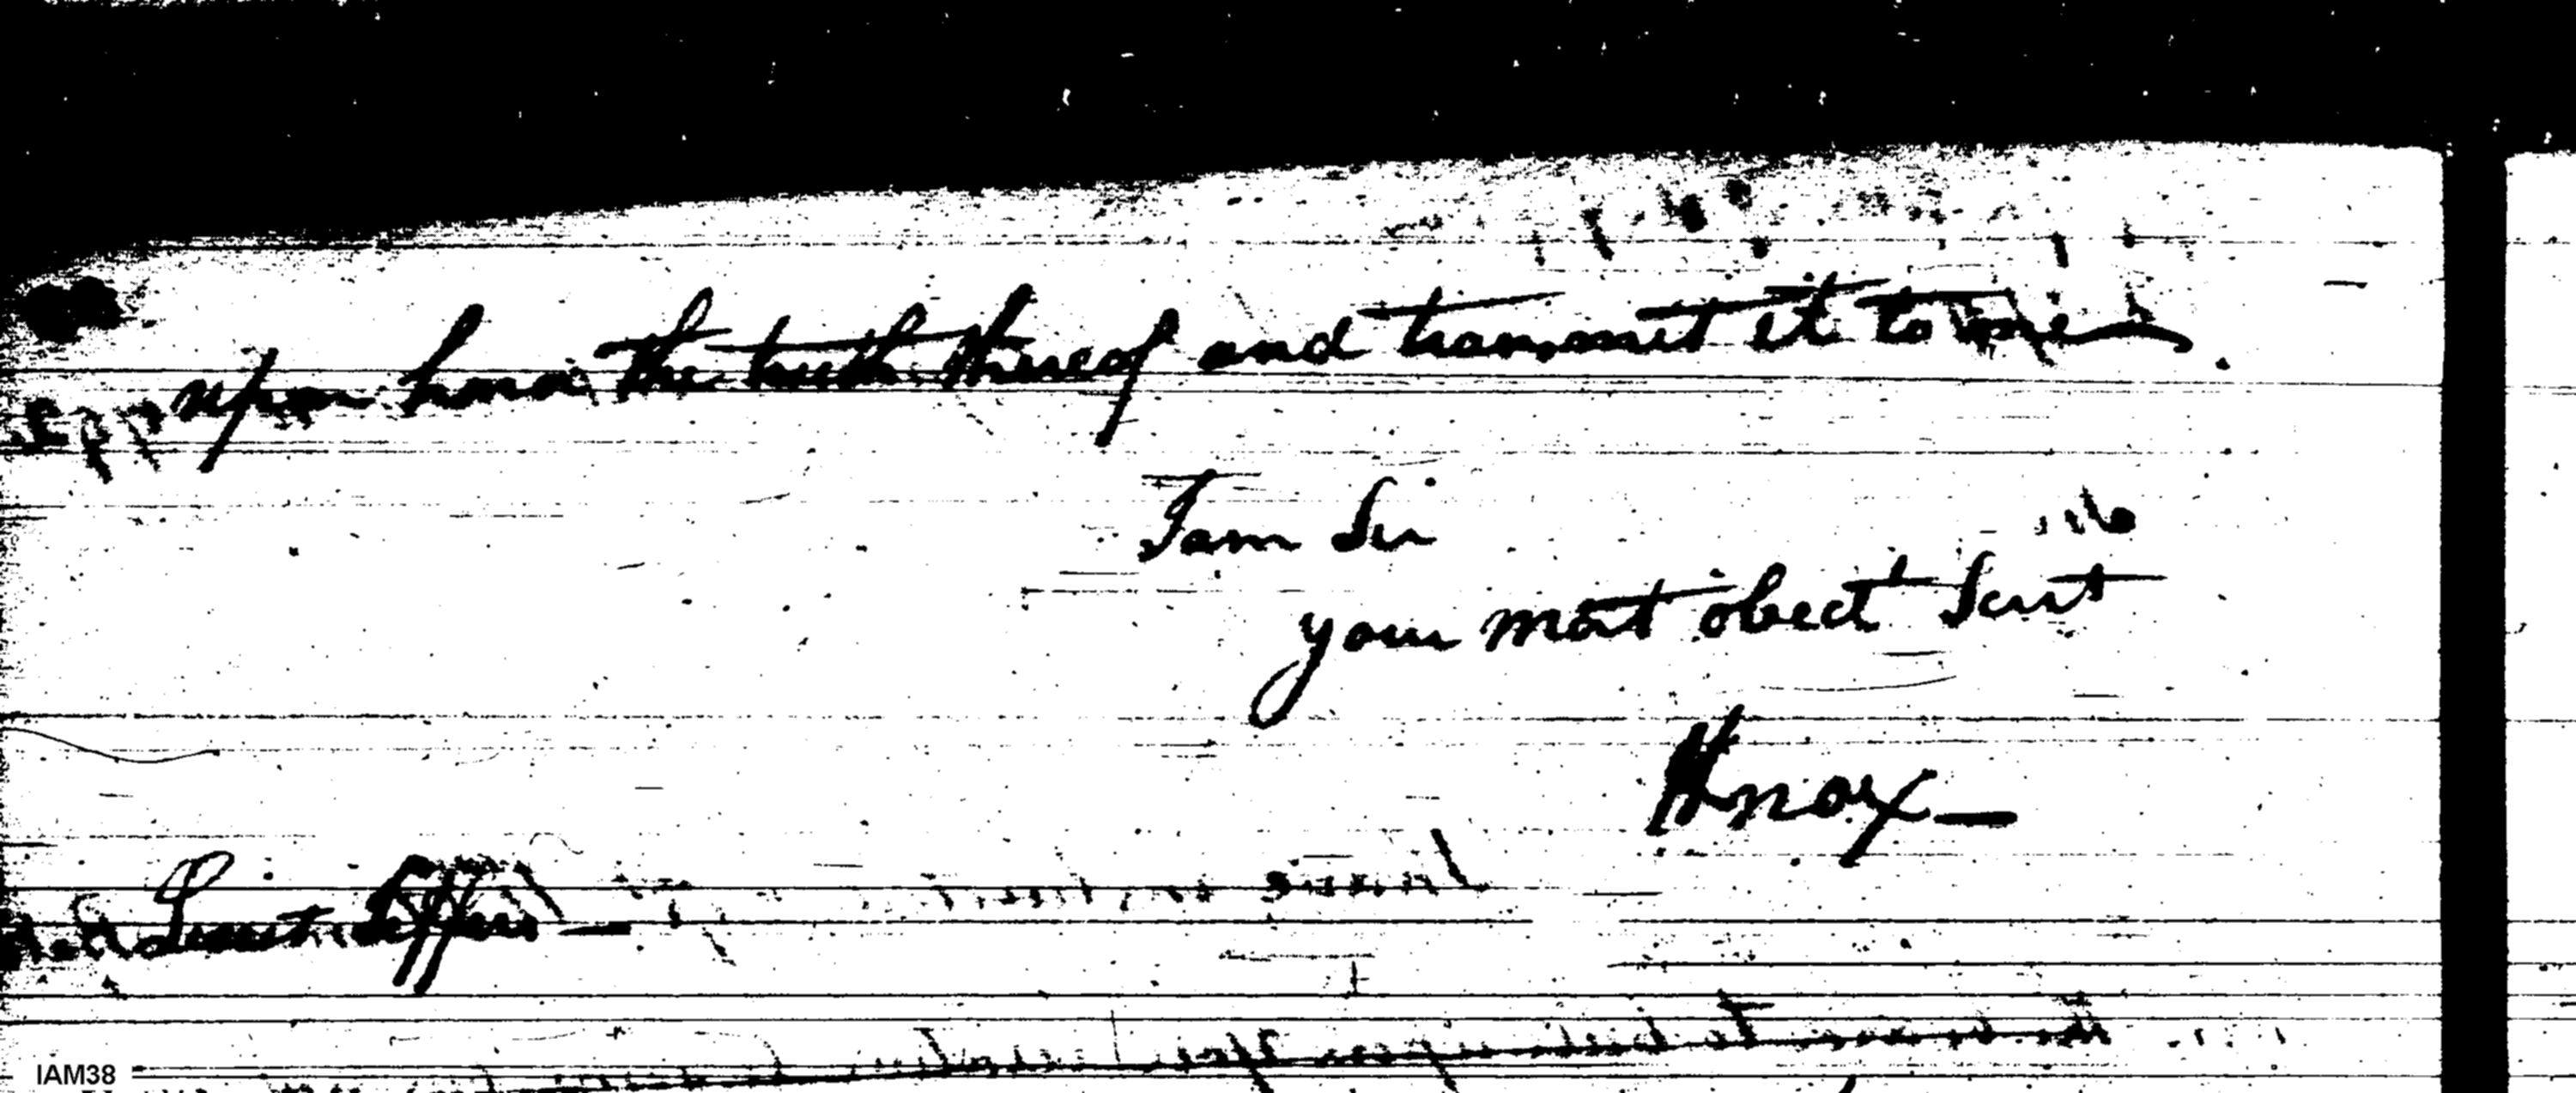 upon honor the truth thereof and transmit it to me.
I am Sir
your most obedt Servt
HKnox—
Lieut Jeffers —
IAM38